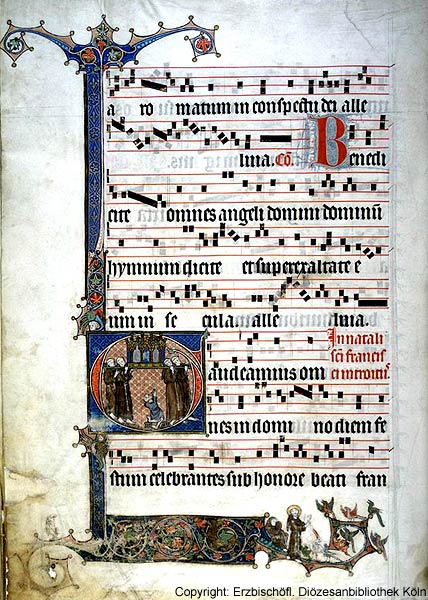 a ro matum in conspectu dei alle
luia. Co. Benedi
cite omnes angeli domini dominū
hymnum dicite et superexaltate e
um in se cula alle luia.
In natali
sci francis
ci introit'
Gaudeamus om
nes in domi no diem fe
stum celebrantes sub honore beati fran
Copyright: Erzbischöfl. Diözesanbibliothek Köln